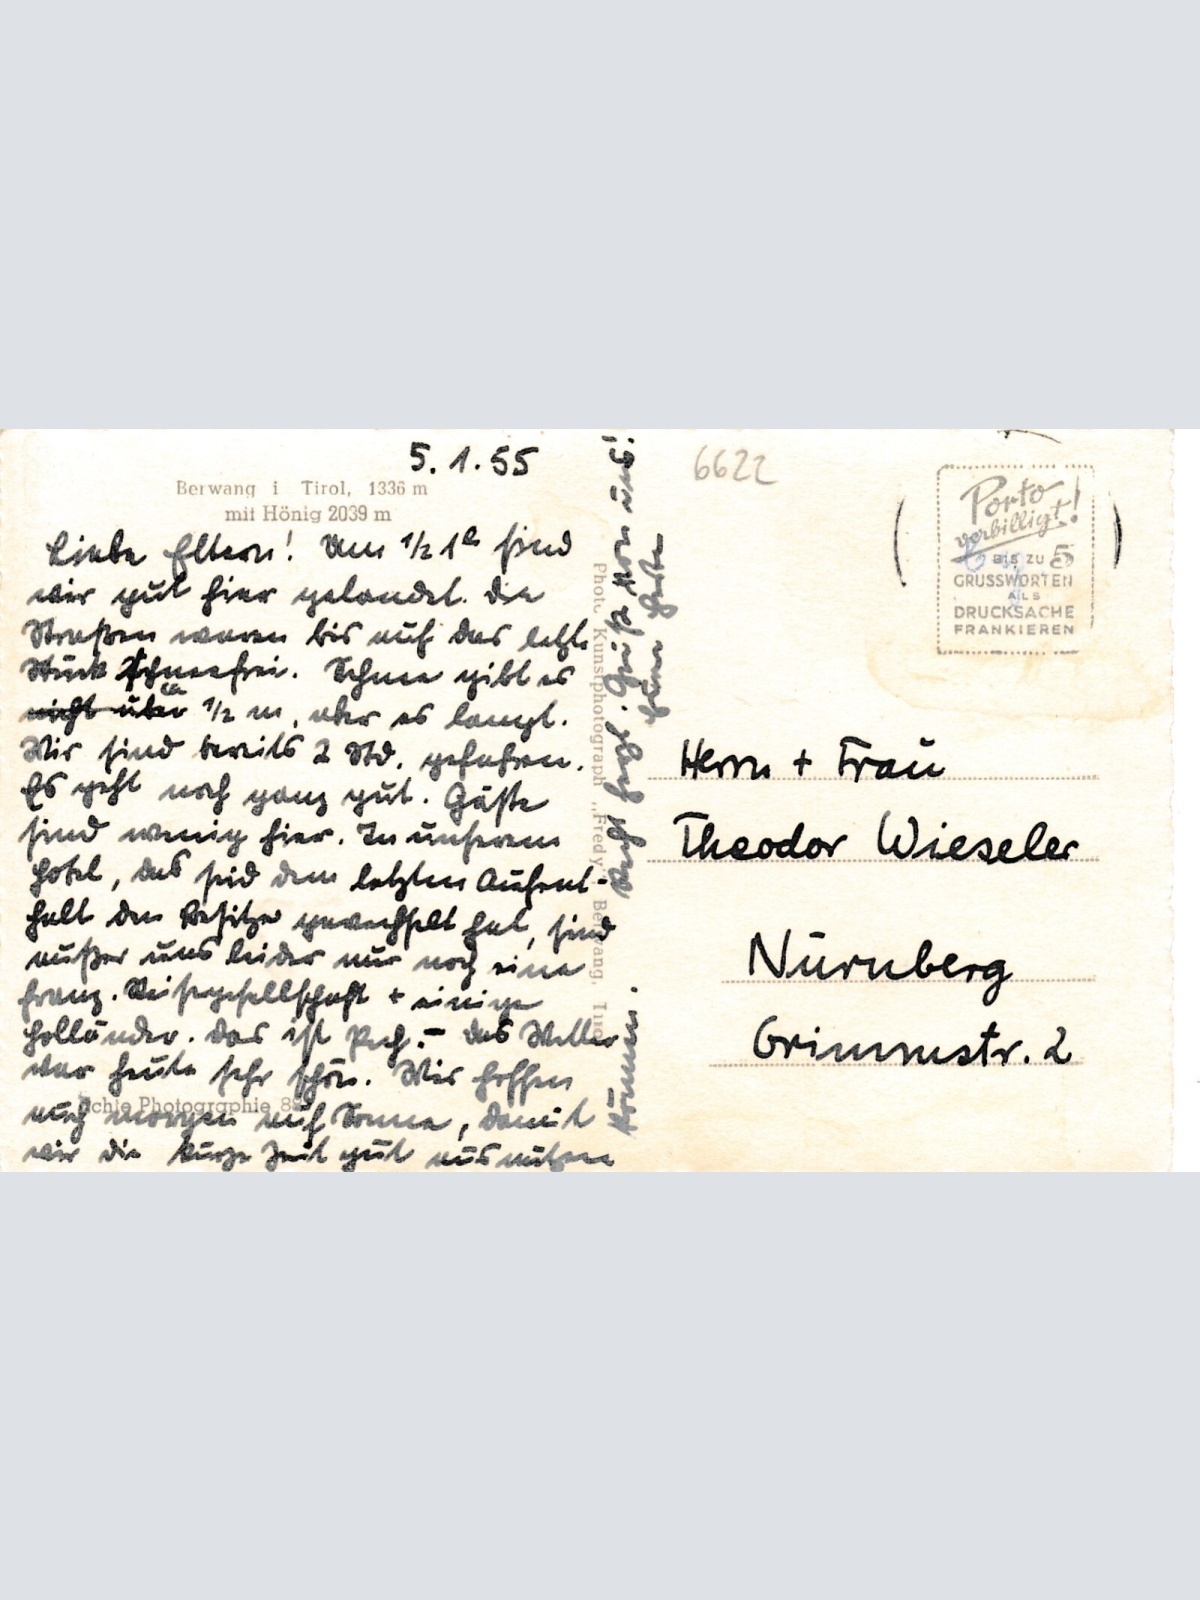 5.1.55
Berwang i Tirol, 1336 m
mit Hönig 2039 m
Liebe Eltern! Um 1/2 1h sind
wir gut hier gelandet. Die
Straßen waren bis auf das letzte
Stück schneefrei. Schnee gibt es
nicht über ca 1/2 m, aber es langt.
Wir sind bereits 2 Std. gefahren.
Es geht noch ganz gut. Gäste
sind wenig hier. In unserem
Hotel, das seid dem letzten Aufent-
halt den Besitzer gewechselt hat, sind
außer uns leider nur noch eine
franz. Reisegesellschaft + einige
Holländer. Das ist Pech. – Das Wetter
war heute sehr schön. Wir hoffen
auch morgen auf Sonne, damit
wir die kurze Zeit gut ausnutzen
können. Recht herzl. Grüße von uns!
Echte Photographie
Photo Kunstphotograph „Fredy" Berwang, Tirol
6622
Porto
verbilligt!
BIS ZU 5
GRUSSWORTEN
ALS
DRUCKSACHE
FRANKIEREN
Herrn + Frau
Theodor Wieseler
Nürnberg
Grimmstr. 2